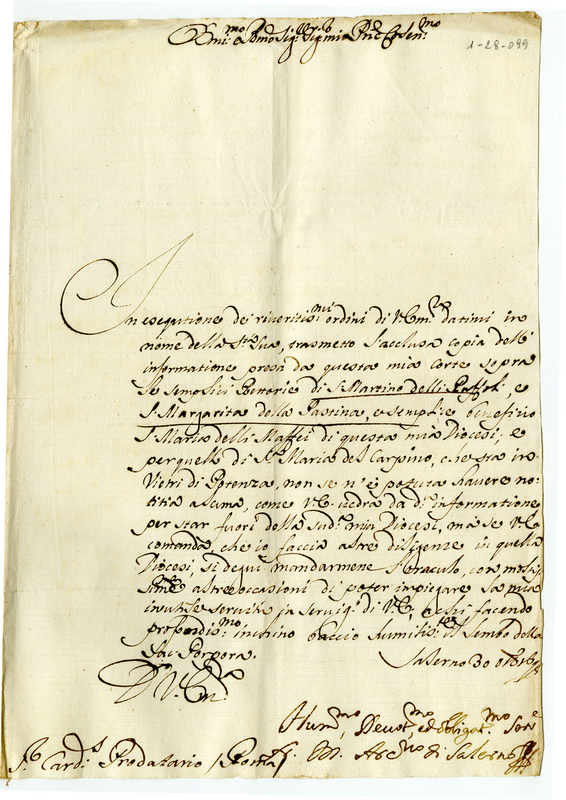 Em.mo e R.mo Sig.r Sig.r mio P.ne Col.mo
1-28-099
In esequtione de riveritis.mi ordini di V. Em.za datimi in
nome della S.tà Sua, trasmetto l'acclusa copia dell'
informatione presa da questa mia corte sopra
le semplici Rettorie di S. Martino delli, e
S. Margarita della Pastina, e semplice beneficio
S. Maria delli Maffei di questa mia Diocesi; e
per quello di S.ta Maria del Carpino, che sta in
Vietri di Potenza, non se n'è potuta havere no-
titia alcuna, come V. E. vedrà da d.a informatione
per star fuori della sud.a mia Diocesi, mà se V. E.
comanda, che io faccia altre diligenze in quella
Diocesi, si degni mandarmene l'oraculo, con
altre occasioni di poter impiegare la mia
inutile servitù in servig.o di V. E., a chi facendo
profondis.mo inchino baccio humilis.te il lembo della
Sac. Porpora.
Salerno 30
D. V. Em.za
Hum.mo, Devot.mo, ed obligat.mo Ser.e
S.r Card.l Prodatario / Roma /
M. Arc.vo di Salerno